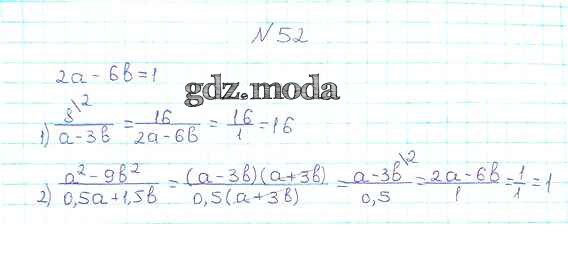 N 52
2a - 6b = 1
gdz.moda
1) 8\2/(a-3b) = 16/(2a-6b) = 16/1 = 16
2) (a²-9b²)/(0,5a+1,5b) = ((a-3b)(a+3b))/(0,5(a+3b)) = (a-3b\2)/0,5 = (2a-6b)/1 = 1/1 = 1